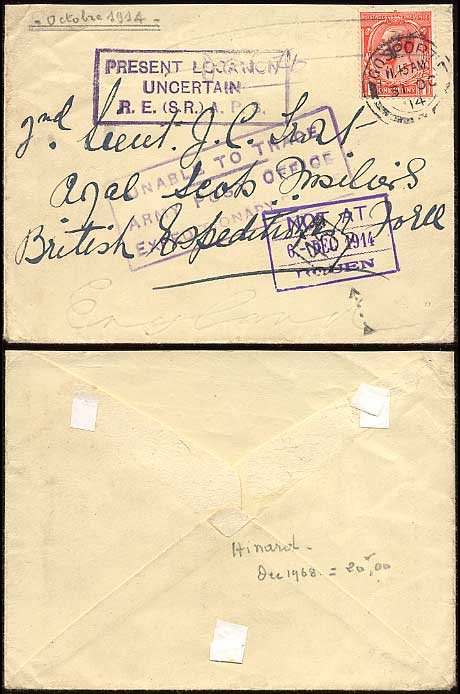 Octobre 1914
PRESENT LOCATION
UNCERTAIN
R.E. (S.R.) A.P.S.
POSTAGE REVENUE
ONE PENNY
GOSPORT
11.15 AM
31 OC
14
2nd Lieut. J. C.
Royal Scots Fusiliers
British Expeditionary Force
UNABLE TO TRACE
ARMY POST OFFICE
EXPEDITIONARY
NOT AT
6-DEC 1914
ROUEN
England
Hinard.
Dec 1968. = 20,00